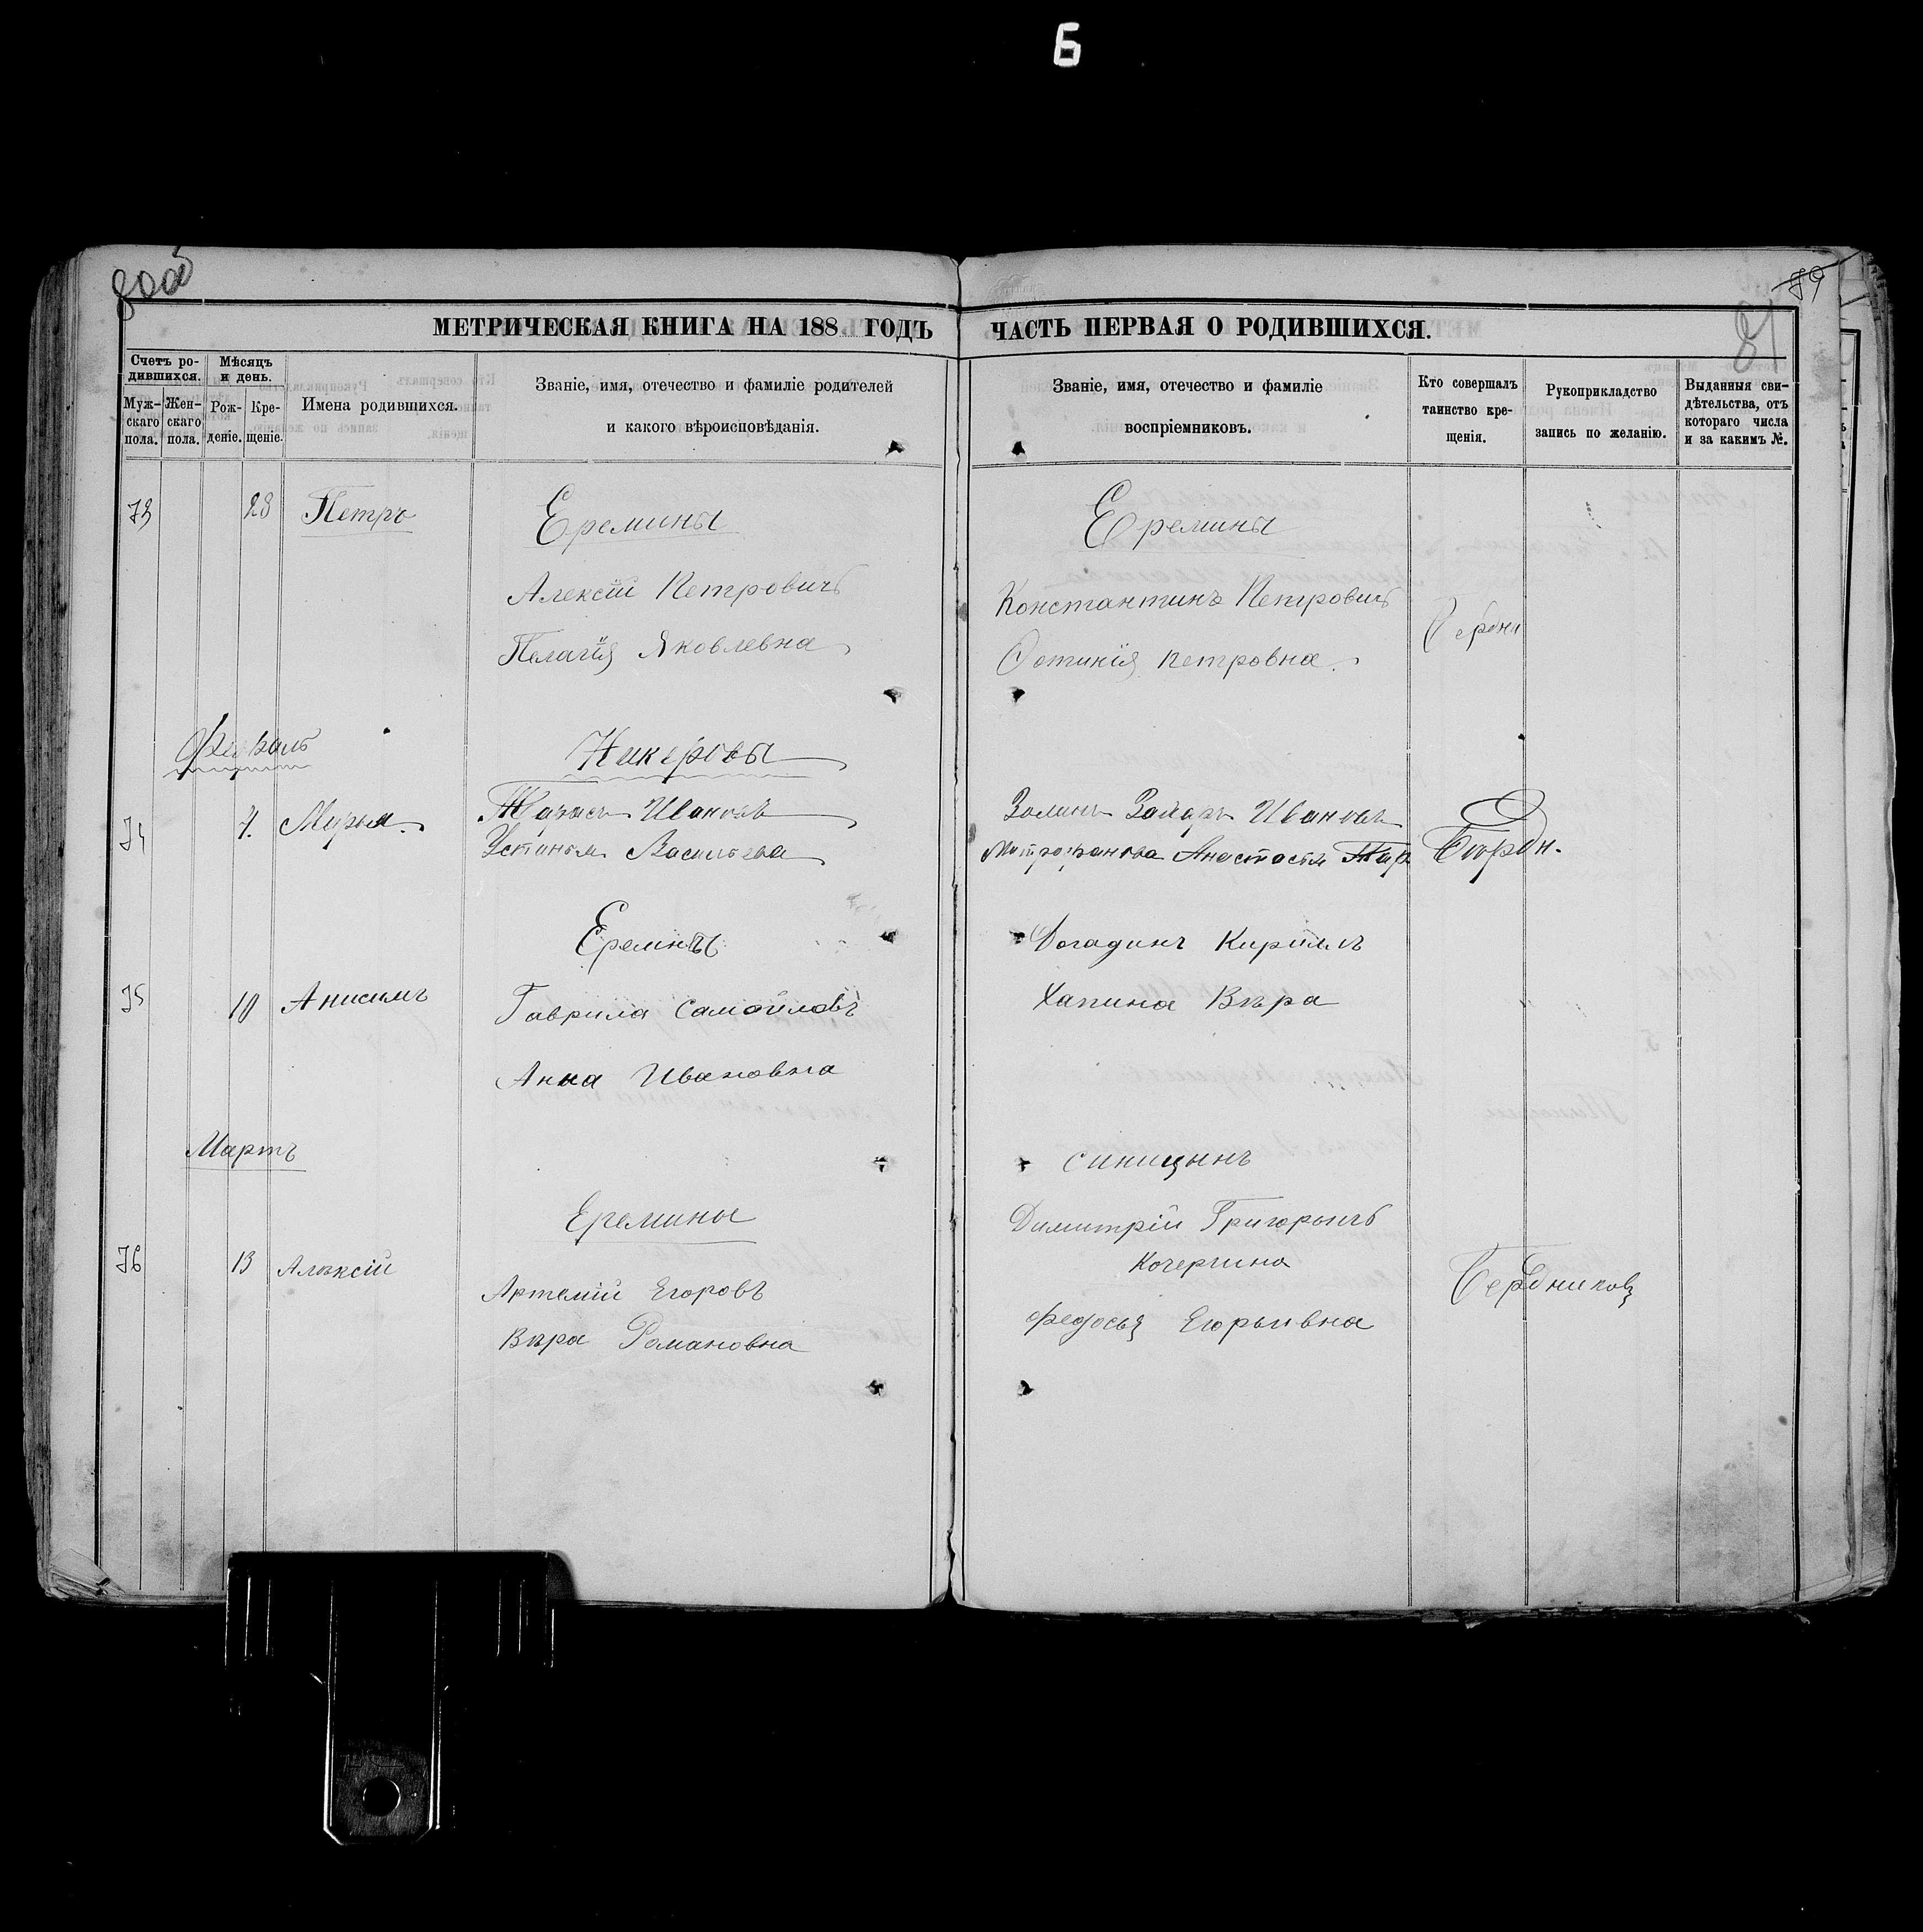 Б
80об
89
81
МЕТРИЧЕСКАЯ КНИГА НА 188 ГОДЪ
ЧАСТЬ ПЕРВАЯ О РОДИВШИХСЯ.
Счетъ ро-
дившихся.
Муж-
скаго
пола.
Жен-
скаго
пола.
Мѣсяцъ
и день.
Рож-
деніе.
Кре-
щеніе.
Имена родившихся.
Званіе, имя, отечество и фамиліе родителей
и какого вѣроисповѣданія.
Званіе, имя, отечество и фамиліе
воспріемниковъ.
Кто совершалъ
таинство кре-
щенія.
Рукоприкладство
запись по желанію.
Выданныя сви-
дѣтельства, отъ
котораго числа
и за какимъ №.
28 Петръ
Еремины
Алексій Петровичъ
Пелагія Яковлевна
Еремины
Константинъ Петровичъ
Фотинія Петровна.
Февраль
Никеровы
74 7. Марья.
Тарасъ Ивановъ
Устинья Васильева
Золинъ Захаръ Ивановъ
Митрофанова Анастасія
75 10 Анисимъ
Ереминъ
Гаврила Самойловъ
Анна Ивановна
Догадинъ Кириллъ
Хапина Вѣра
Мартъ
76 13 Алѣксій
Еремины
Артемій Егоровъ
Вѣра Романовна
Синицынъ
Димитрій Григорьичъ
Кочергина
Федосья Егорьивна
Бердниковъ